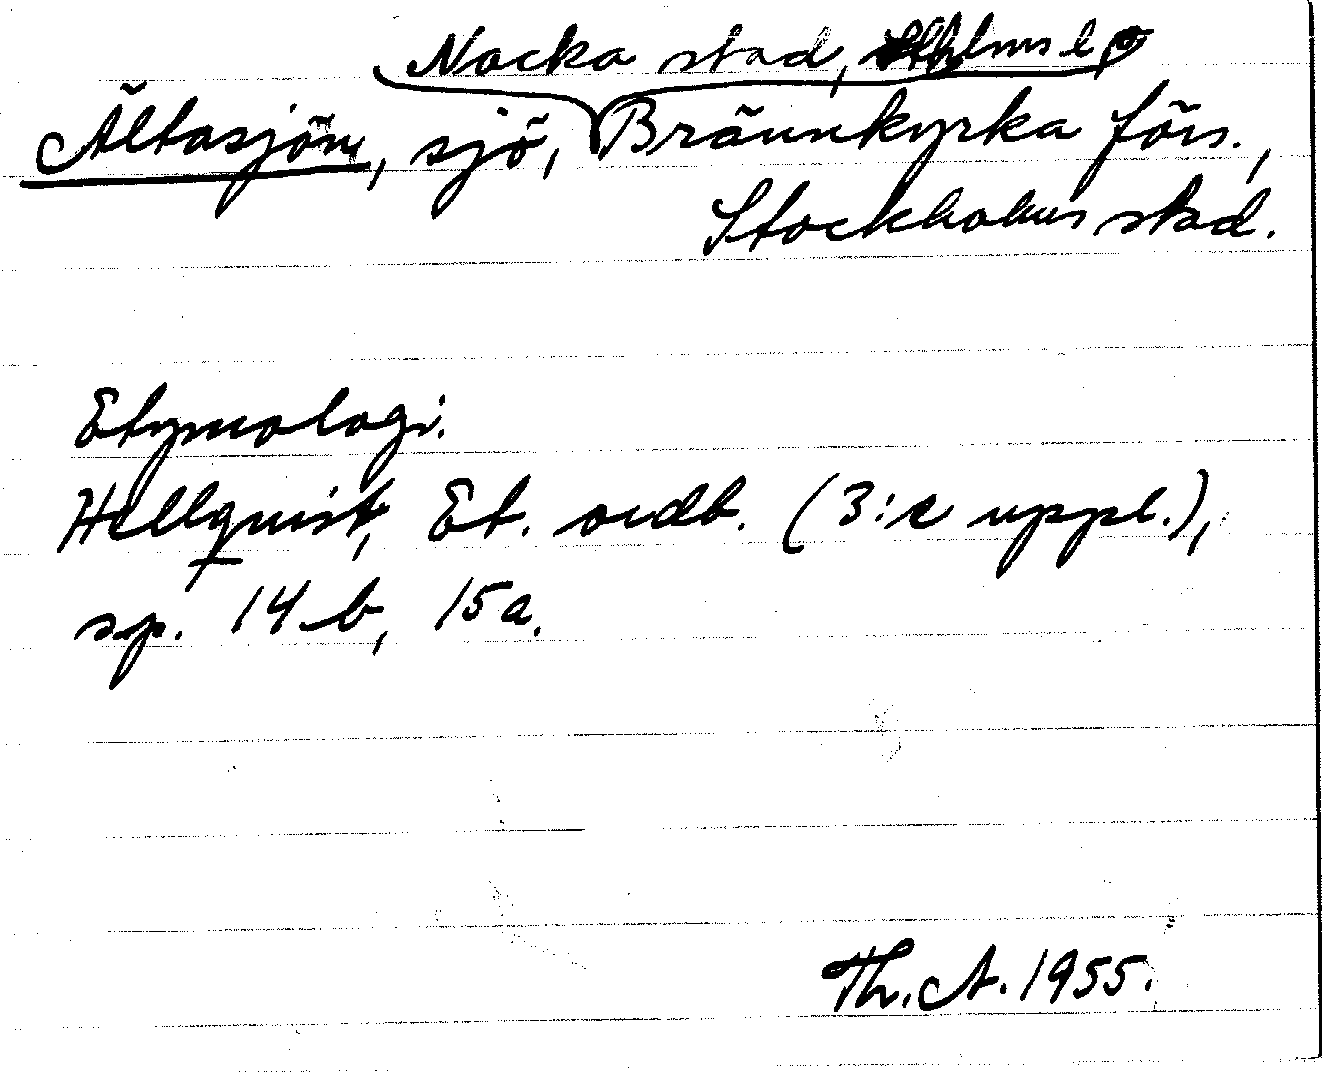 Nacka stad, Sthlms l.
Ältasjön, sjö, Brännkyrka förs.,
Stockholms stad.
Etymologi.
Hellquist, Et. ordb. (3:e uppl.),
sp. 14 b, 15 a.
Th. A. 1955.